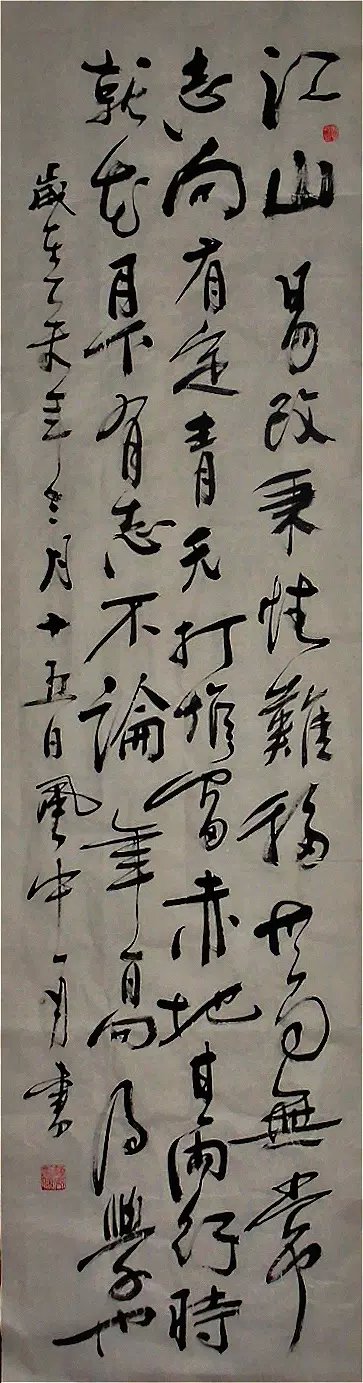 江山易改秉性難移世局無常
志向有定青天打赤地甘雨行時
就在下有志不論年高學也
歲在乙未年三月十五日風中一書